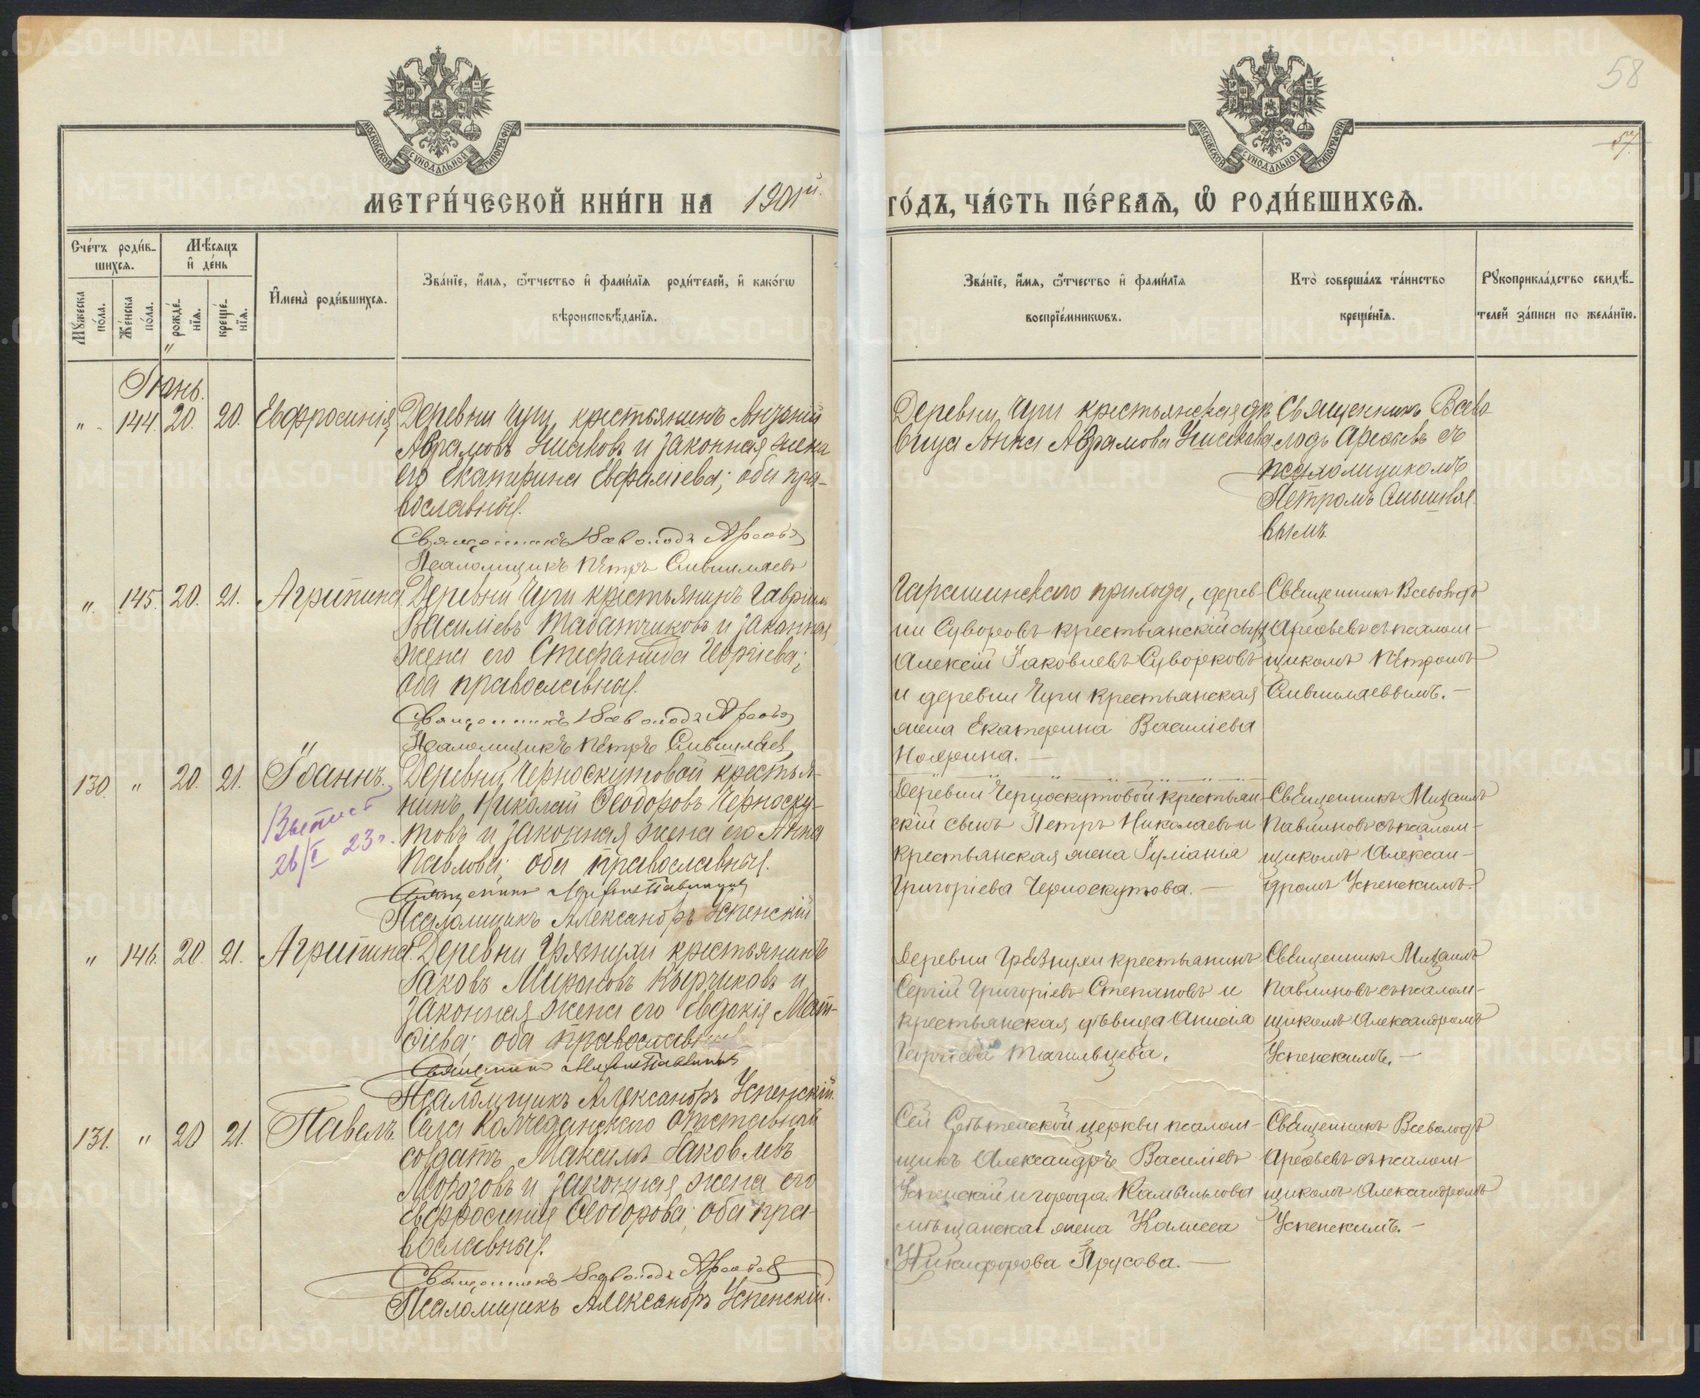 58
57.
МОСКОВСКОЙ СѴНОДАЛЬНОЙ ТИПОГРАФІИ
МОСКОВСКОЙ СѴНОДАЛЬНОЙ ТИПОГРАФІИ
МЕТРИ́ЧЕСКОЙ КНИ́ГИ НА 1901й.
ГО́ДЪ, ЧА́СТЬ ПЕ́РВАѦ, Ѡ РОДИ́ВШИХСѦ.
Сче́тъ роди́в-
шихсѧ.
Мѣ́сѧцъ
и҆ де́нь
Мꙋ́жеска
по́ла.
Же́нска
по́ла.
рожде́-
нїѧ.
креще́-
нїѧ.
И҆мена̀ роди́вшихсѧ.
Зва́нїе, и҆́мѧ, ѻ҆́тчество и҆ фами́лїѧ роди́телей, и҆ како́гѡ
вѣроисповѣ́данїѧ.
Зва́нїе, и҆́мѧ, ѻ҆́тчество и҆ фами́лїѧ
воспрїе́мникѡвъ.
Кто̀ соверша́лъ та́инство
креще́нїѧ.
Рꙋкоприкла́дство свидѣ́-
телей за́писи по жела́нїю.
Іюнь.
" 144. 20. 20. Евфросинія
Деревни Чуги, крестьянинъ
Аврамовъ Ушаковъ и законная жена
его Екатерина Евфиміева; оба пра-
вославныя.
Священникъ Всеволодъ Арефьевъ
Псаломщикъ Петръ
Деревни Чуги крестьянская дѣ-
вица Анна Аврамова Ушакова
Священникъ Всево-
лодъ Арефьевъ съ
псаломщикомъ
Петромъ
вымъ
" 145. 20. 21. Агрипина
Деревни Чуги крестьянинъ Гавріилъ
Васильевъ Табатчиковъ и законная
жена его Стефанида Георгіева;
оба православныя.
Священникъ Всеволодъ Арефьевъ
Псаломщикъ Петръ
Гарашинскаго прихода, дерев-
ни Суворовъ крестьянскій сынъ
Алексій Іаковлевъ Суворковъ
и деревни Чуги крестьянская
жена Екатерина Васильева
Священникъ Всеволодъ
Арефьевъ съ псалом-
щикомъ Петромъ
130. " 20. 21. Іоаннъ.
Выпись
26/I 23г.
Деревни, Черноскутовой крестья-
нинъ, Николай Ѳеодоровъ Черноску-
товъ и законная жена его Анна
Павлова; оба православныя.
Священникъ Михаилъ Павлиновъ
Псаломщикъ Александръ Успенскій
Деревни Черноскутовой крестьян-
скій сынъ Петръ Николаевъ и
крестьянская жена Іуліанія
Григоріева Черноскутова.
Священникъ Михаилъ
Павлиновъ съ псалом-
щикомъ Алексан-
дромъ Успенскимъ.
" 146. 20. 21. Агрипина.
Деревни Грязнухи крестьянинъ
Іаковъ Мироновъ Кырчиковъ и
законная жена его Евдокія Мат-
ѳіева; оба православныя
Священникъ Михаилъ Павлиновъ
Псаломщикъ Александръ Успенскій.
Деревни Грязнухи крестьянинъ
Сергій Григоріевъ Степановъ и
крестьянская дѣвица Анисія
Георгіева Тагильцева.
Священникъ Михаилъ
Павлиновъ съ псалом-
щикомъ Александромъ
Успенскимъ.
131. " 20 21. Павелъ
Села Колчеданскаго отставной
солдатъ Максимъ Іаковлевъ
Морозовъ и законная жена его
Евфросинія Ѳеодорова; оба пра-
вославныя.
Священникъ Всеволодъ Арефьевъ
Псаломщикъ Александръ Успенскій.
Сей Срѣтенской церкви псалом-
щикъ Александръ Васильевъ
Успенскій и города Камышлова
мѣщанская жена
Никифорова Прусова.
Священникъ Всеволодъ
Арефьевъ съ псалом-
щикомъ Александромъ
Успенскимъ.
METRIKI.GASO-URAL.RU